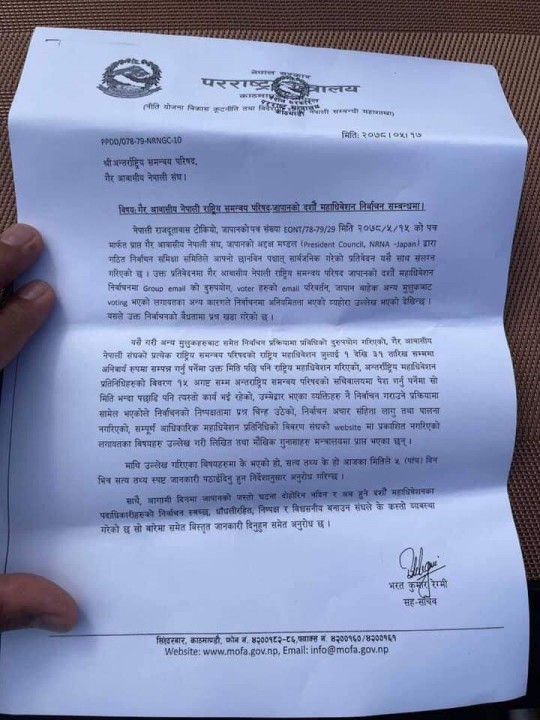 नेपाल सरकार
परराष्ट्र मन्त्रालय
काठमाण्डौ
(नीति योजना विकास कूटनीति तथा नेपाली सम्बन्धी महाशाखा)
PPDD/078-79-NRNGC-10
मिति: २०७८।०५।१७
श्री अन्तर्राष्ट्रिय समन्वय परिषद्,
गैर आवासीय नेपाली संघ।
विषय: गैर आवासीय नेपाली राष्ट्रिय समन्वय परिषद-जापानको दशौँ महाधिवेशन निर्वाचन सम्बन्धमा।
नेपाली राजदूतावास टोकियो, जापानको पत्र संख्या EONT/78-79/29 मिति २०७८/५/१५ को पत्र
मार्फत प्राप्त गैर आवासीय नेपाली संघ, जापानको अध्यक्ष मण्डल (President Council, NRNA -Japan) द्वारा
गठित निर्वाचन समिक्षा समितिले आफ्नो छानविन पश्चात् सार्वजनिक गरेको प्रतिवेदन यसै साथ संलग्न
गरिएको छ । उक्त प्रतिवेदनमा गैर आवासीय नेपाली राष्ट्रिय समन्वय परिषद जापानको दशौँ महाधिवेशन
निर्वाचनमा Group email को दुरुपयोग, voter हरुको email परिवर्तन, जापान बाहेक अन्य मुलुकबाट
voting भएको लगायतका अन्य कारणले निर्वाचनमा अनियमितता भएको व्यहोरा उल्लेख भएको देखिन्छ ।
यसले उक्त निर्वाचनको वैधतामा प्रश्न खडा गरेको छ ।
यसै गरी अन्य मुलुकहरुबाट समेत निर्वाचन प्रक्रियामा प्रविधिको दुरुपयोग गरिएको, गैर आवासीय
नेपाली संघको प्रत्येक राष्ट्रिय समन्वय परिषदको राष्ट्रिय महाधिवेशन जुलाई १ देखि ३१ तारिख सम्ममा
अनिवार्य रुपमा सम्पन्न गर्नु पर्नेमा उक्त मिति पछि पनि राष्ट्रिय महाधिवेशन गरिएको, अन्तर्राष्ट्रिय महाधिवेशन
प्रतिनिधिहरुको विवरण १५ अगष्ट सम्म अन्तर्राष्ट्रिय समन्वय परिषदको सचिवालयमा पेश गर्नु पर्नेमा सो
मिति भन्दा पछाडि पनि त्यस्तो कार्य भई रहेको, उम्मेद्वार भएका व्यक्तिहरु नै निर्वाचन गराउने प्रक्रियामा
सामेल भएकोले निर्वाचनको निष्पक्षतामा प्रश्न चिन्ह उठेको, निर्वाचन अचार संहिता लागु तथा पालना
नगरिएको, सम्पूर्ण आधिकारिक महाधिवेशन प्रतिनिधिको विवरण संघको website मा प्रकाशित नगरिएको
लगायतका विषयहरु उल्लेख गरी लिखित तथा मौखिक गुनासाहरु मन्त्रालयमा प्राप्त भएका छन् ।
माथि उल्लेख गरिएका विषयहरुमा के भएको हो, सत्य तथ्य के हो आजका मितिले ५ (पांच) दिन
भित्र सत्य तथ्य स्पष्ट जानकारी पठाईदिनु हुन निर्देशानुसार अनुरोध गरिन्छ ।
साथै, आगामी दिनमा जापानको जस्तो घटना दोहोरिन नदिन र अब हुने दशौँ महाधिवेशनका
पदाधिकारीहरुको निर्वाचन स्वच्छ, धाँधलीरहित, निष्पक्ष र विश्वसनीय बनाउन संघले के कस्तो व्यवस्था
गरेको छ सो बारेमा समेत विस्तृत जानकारी दिनुहुन समेत अनुरोध छ ।
भरत कुमार रेग्मी
सह-सचिव
सिंहदरबार, काठमाण्डौ, फोन नं. ४२००१८२-८६, फ्याक्स नं. ४२००१६०/४२००१६१
Website: www.mofa.gov.np, Email: info@mofa.gov.np